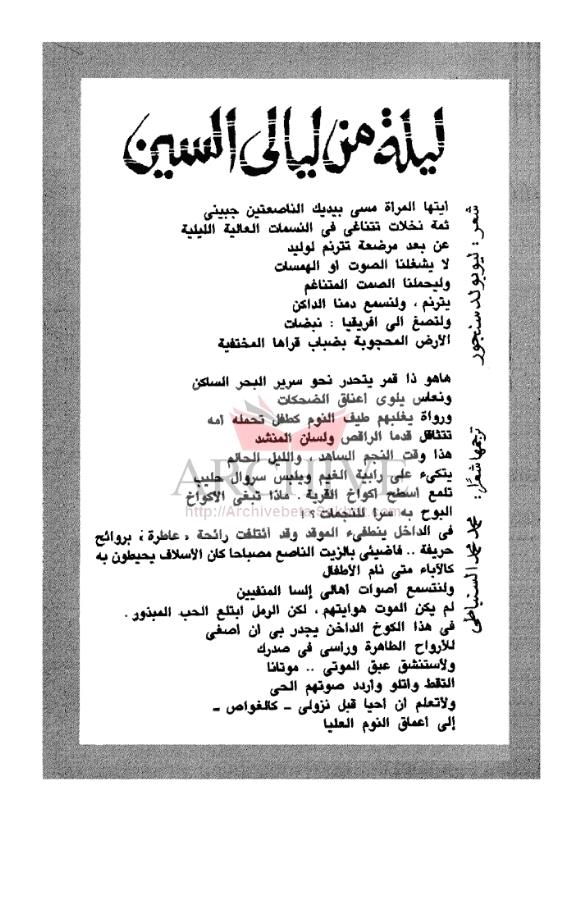 ليلة من ليالى السين
شعر : ليوبولد سنجور
ترجمها شعرًا : محمد محمد السنباطى
ايتها المراة مسى بيديك الناصعتين جبينى
ثمة نخلات تتناغى فى النسمات العالية الليلية
عن بعد مرضعة تترنم لوليد
لا يشغلنا الصوت او الهمسات
وليحملنا الصمت المتناغم
يترنم ، ولنسمع دمنا الداكن
ولنصغ الى افريقيا : نبضات
الأرض المحجوبة بضباب قراها المختفية
هاهو ذا قمر يتحدر نحو سرير البحر الساكن
ونعاس يلوى اعناق الضحكات
ورواة يغلبهم طيف النوم كطفل تحمله امه
تتثاقل قدما الراقص ولسان المنشد
هذا وقت النجم الساهد ، والليل الحالم
يتكىء على رابية الغيم ويلبس سروال حليب
تلمع اسطح اكواخ القرية . ماذا تبغى الأكواخ
البوح به سرا للنجمات ؟ !
فى الداخل ينطفىء الموقد وقد ائتلفت رائحة « عاطرة » بروائح
حريفة .. فاضيئى بالزيت الناصع مصباحا كان الأسلاف يحيطون به
كالآباء متى نام الأطفال
ولنتسمع أصوات أهالى إلسا المنفيين
لم يكن الموت هوايتهم ، لكن الرمل ابتلع الحب المبذور .
فى هذا الكوخ الداخن يجدر بى ان أصغى
للأرواح الطاهرة ورأسى فى صدرك
ولأستنشق عبق الموتى .. موتانا
التقط واتلو وأردد صوتهم الحى
ولأتعلم ان أحيا قبل نزولى - كالغواص -
إلى أعماق النوم العليا
ARCHIVE
http://Archivebeta.Sakhrit.com